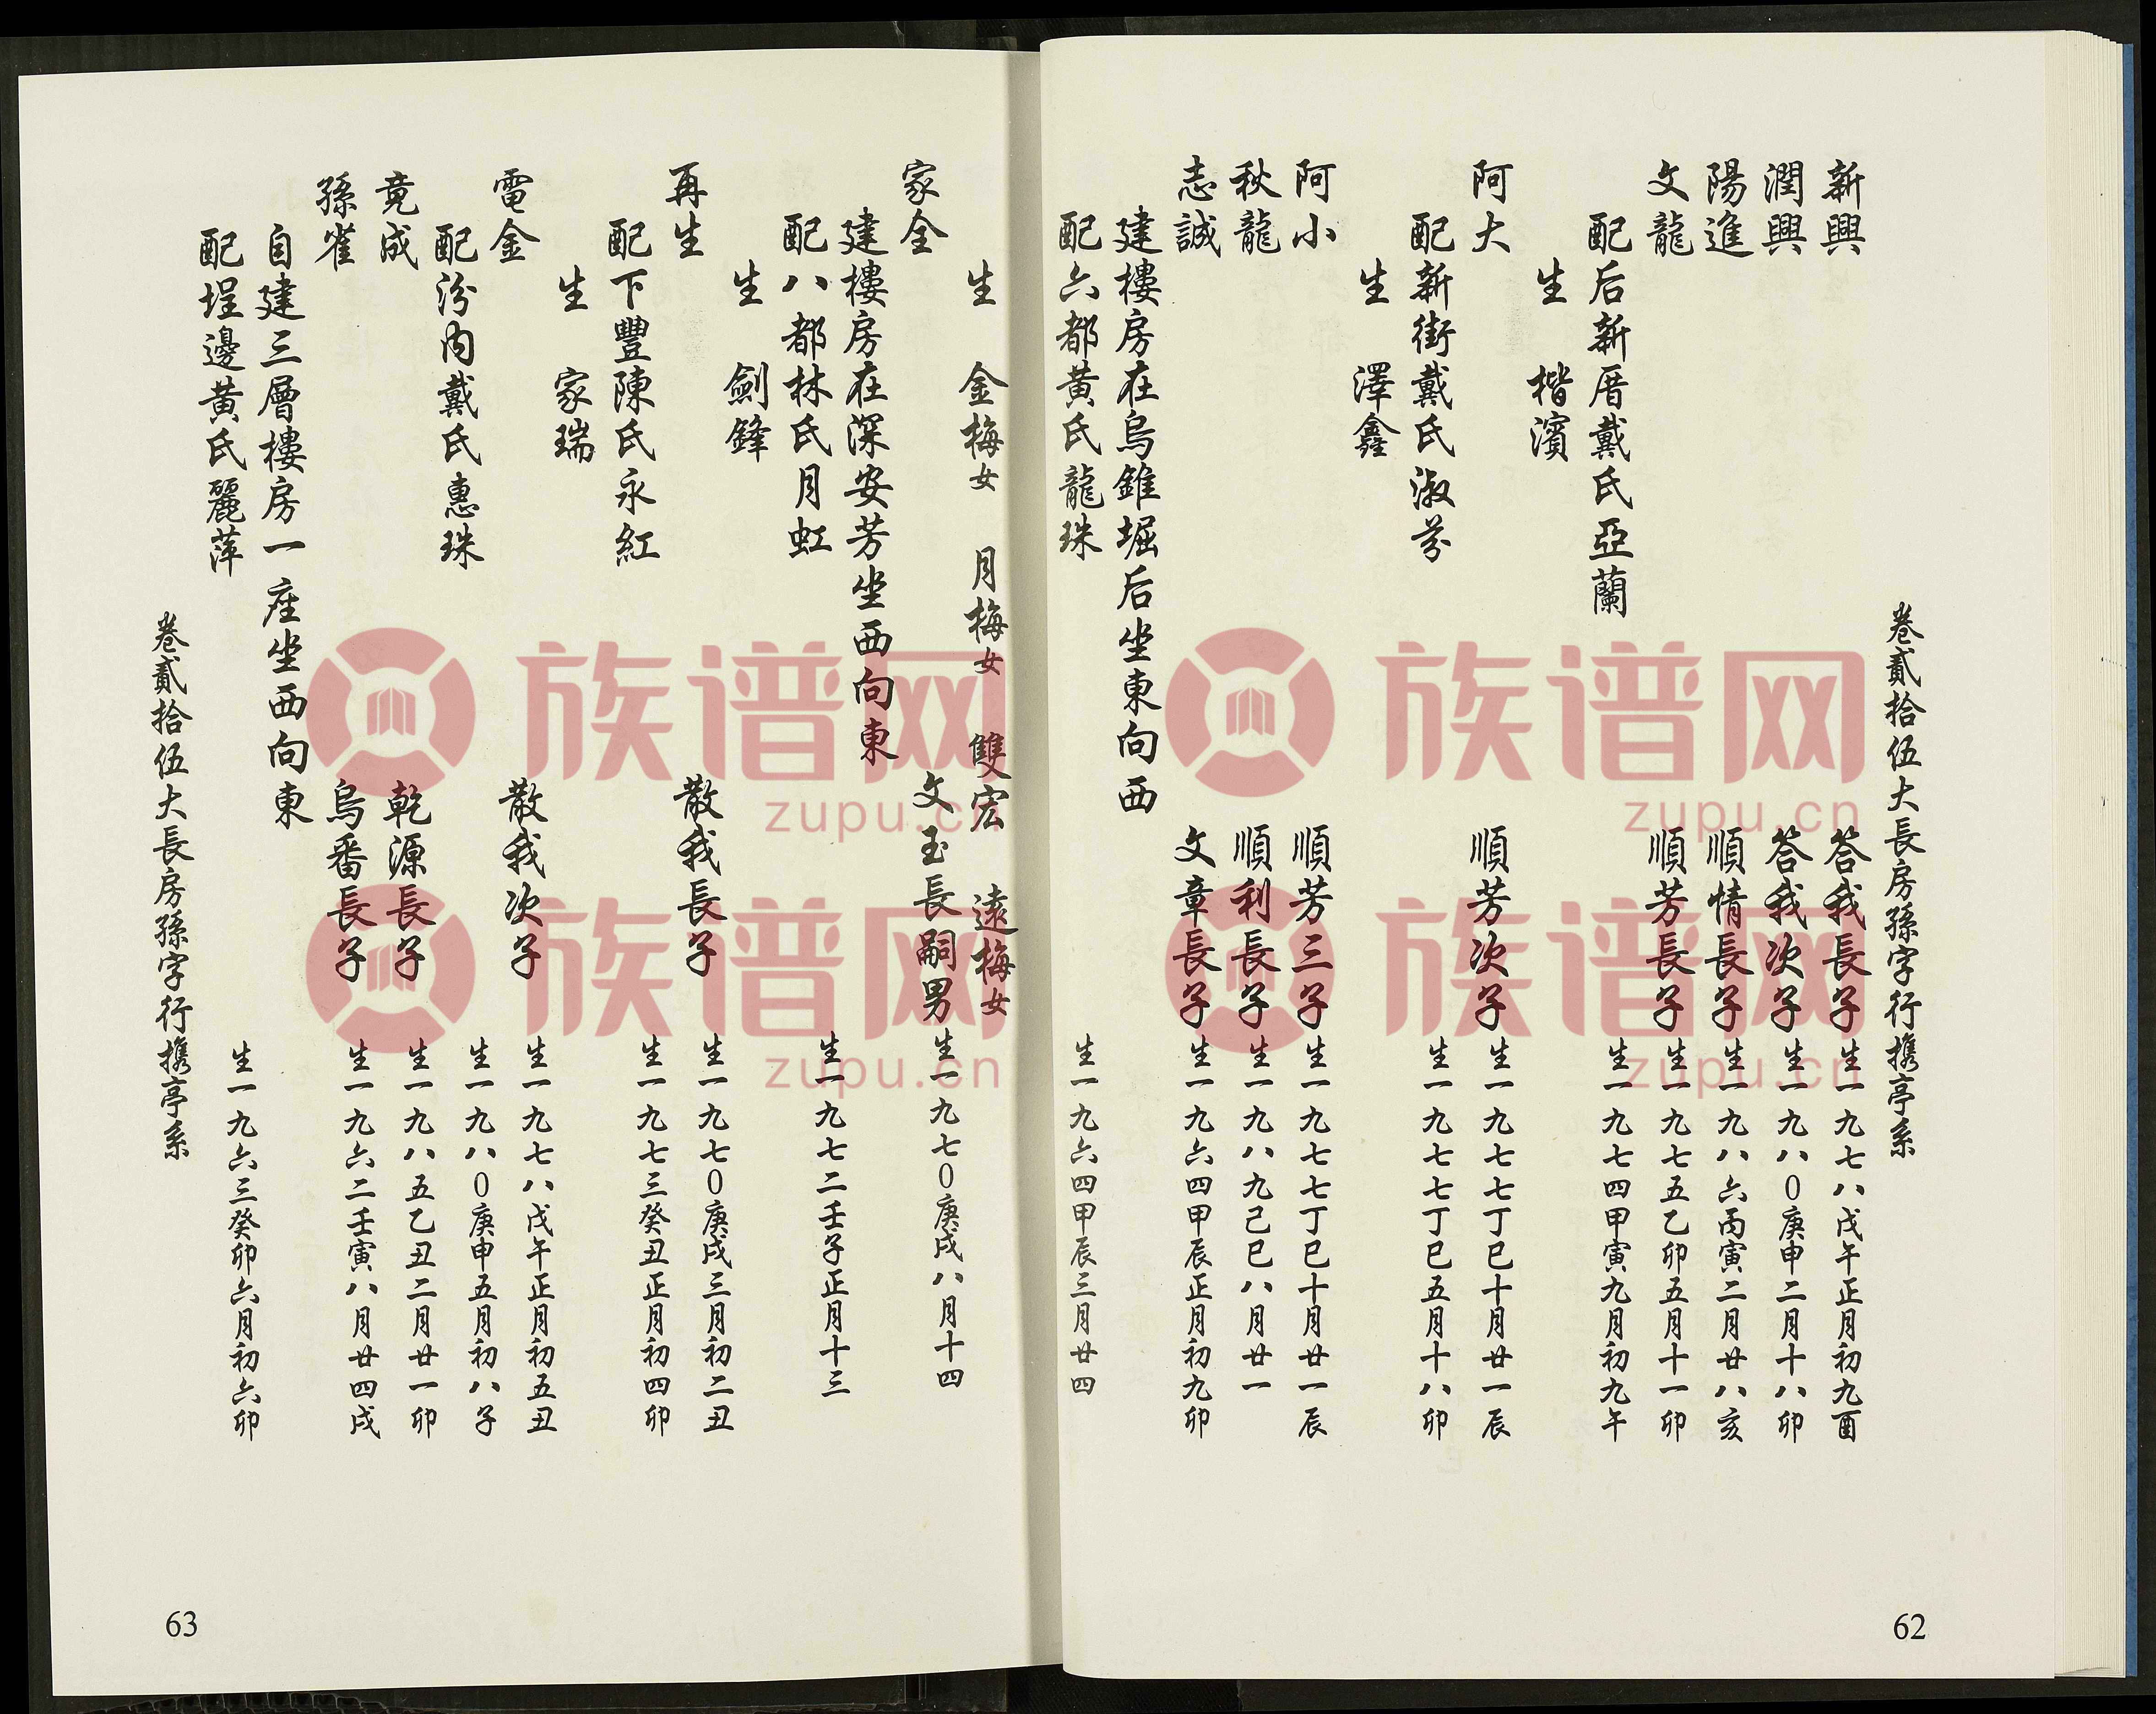 卷貳拾伍大長房孫字行携亭系
新興 答我長子 生一九七八戊午正月初九酉
潤興 答我次子 生一九八0庚申二月十八卯
陽進 順情長子 生一九八六丙寅二月廿八亥
文龍 順芳長子 生一九七五乙卯五月十一卯
配后新厝戴氏亞蘭 生一九七四甲寅九月初九午
生 楷濱
阿大 順芳次子 生一九七七丁巳十月廿一辰
配新街戴氏淑芬 生一九七七丁巳五月十八卯
生 澤鑫
阿小 順芳三子 生一九七七丁巳十月廿一辰
秋龍 順利長子 生一九八九己巳八月廿一
志誠 文章長子 生一九六四甲辰正月初九卯
建樓房在烏錐堀后坐東向西
配六都黃氏龍珠 生一九六四甲辰三月廿四
62
生 金梅女 月梅女 雙宏 遠梅女
家全 文玉長嗣男 生一九七0庚戌八月十四
建樓房在深安芳坐西向東
配八都林氏月虹 生一九七二壬子正月十三
生 劍鋒
再生 散我長子 生一九七0庚戌三月初二丑
配下豐陳氏永紅 生一九七三癸丑正月初四卯
生 家瑞
電金 散我次子 生一九七八戊午正月初五丑
配汾内戴氏惠珠 生一九八0庚申五月初八子
竟成 乾源長子 生一九八五乙丑二月廿一卯
孫雀 烏番長子 生一九六二壬寅八月廿四戌
自建三層樓房一座坐西向東
配埕邊黃氏麗萍 生一九六三癸卯六月初六卯
卷貳拾伍大長房孫字行携亭系
63
族谱网
zupu.cn
族谱网
zupu.cn
族谱网
zupu.cn
族谱网
zupu.cn